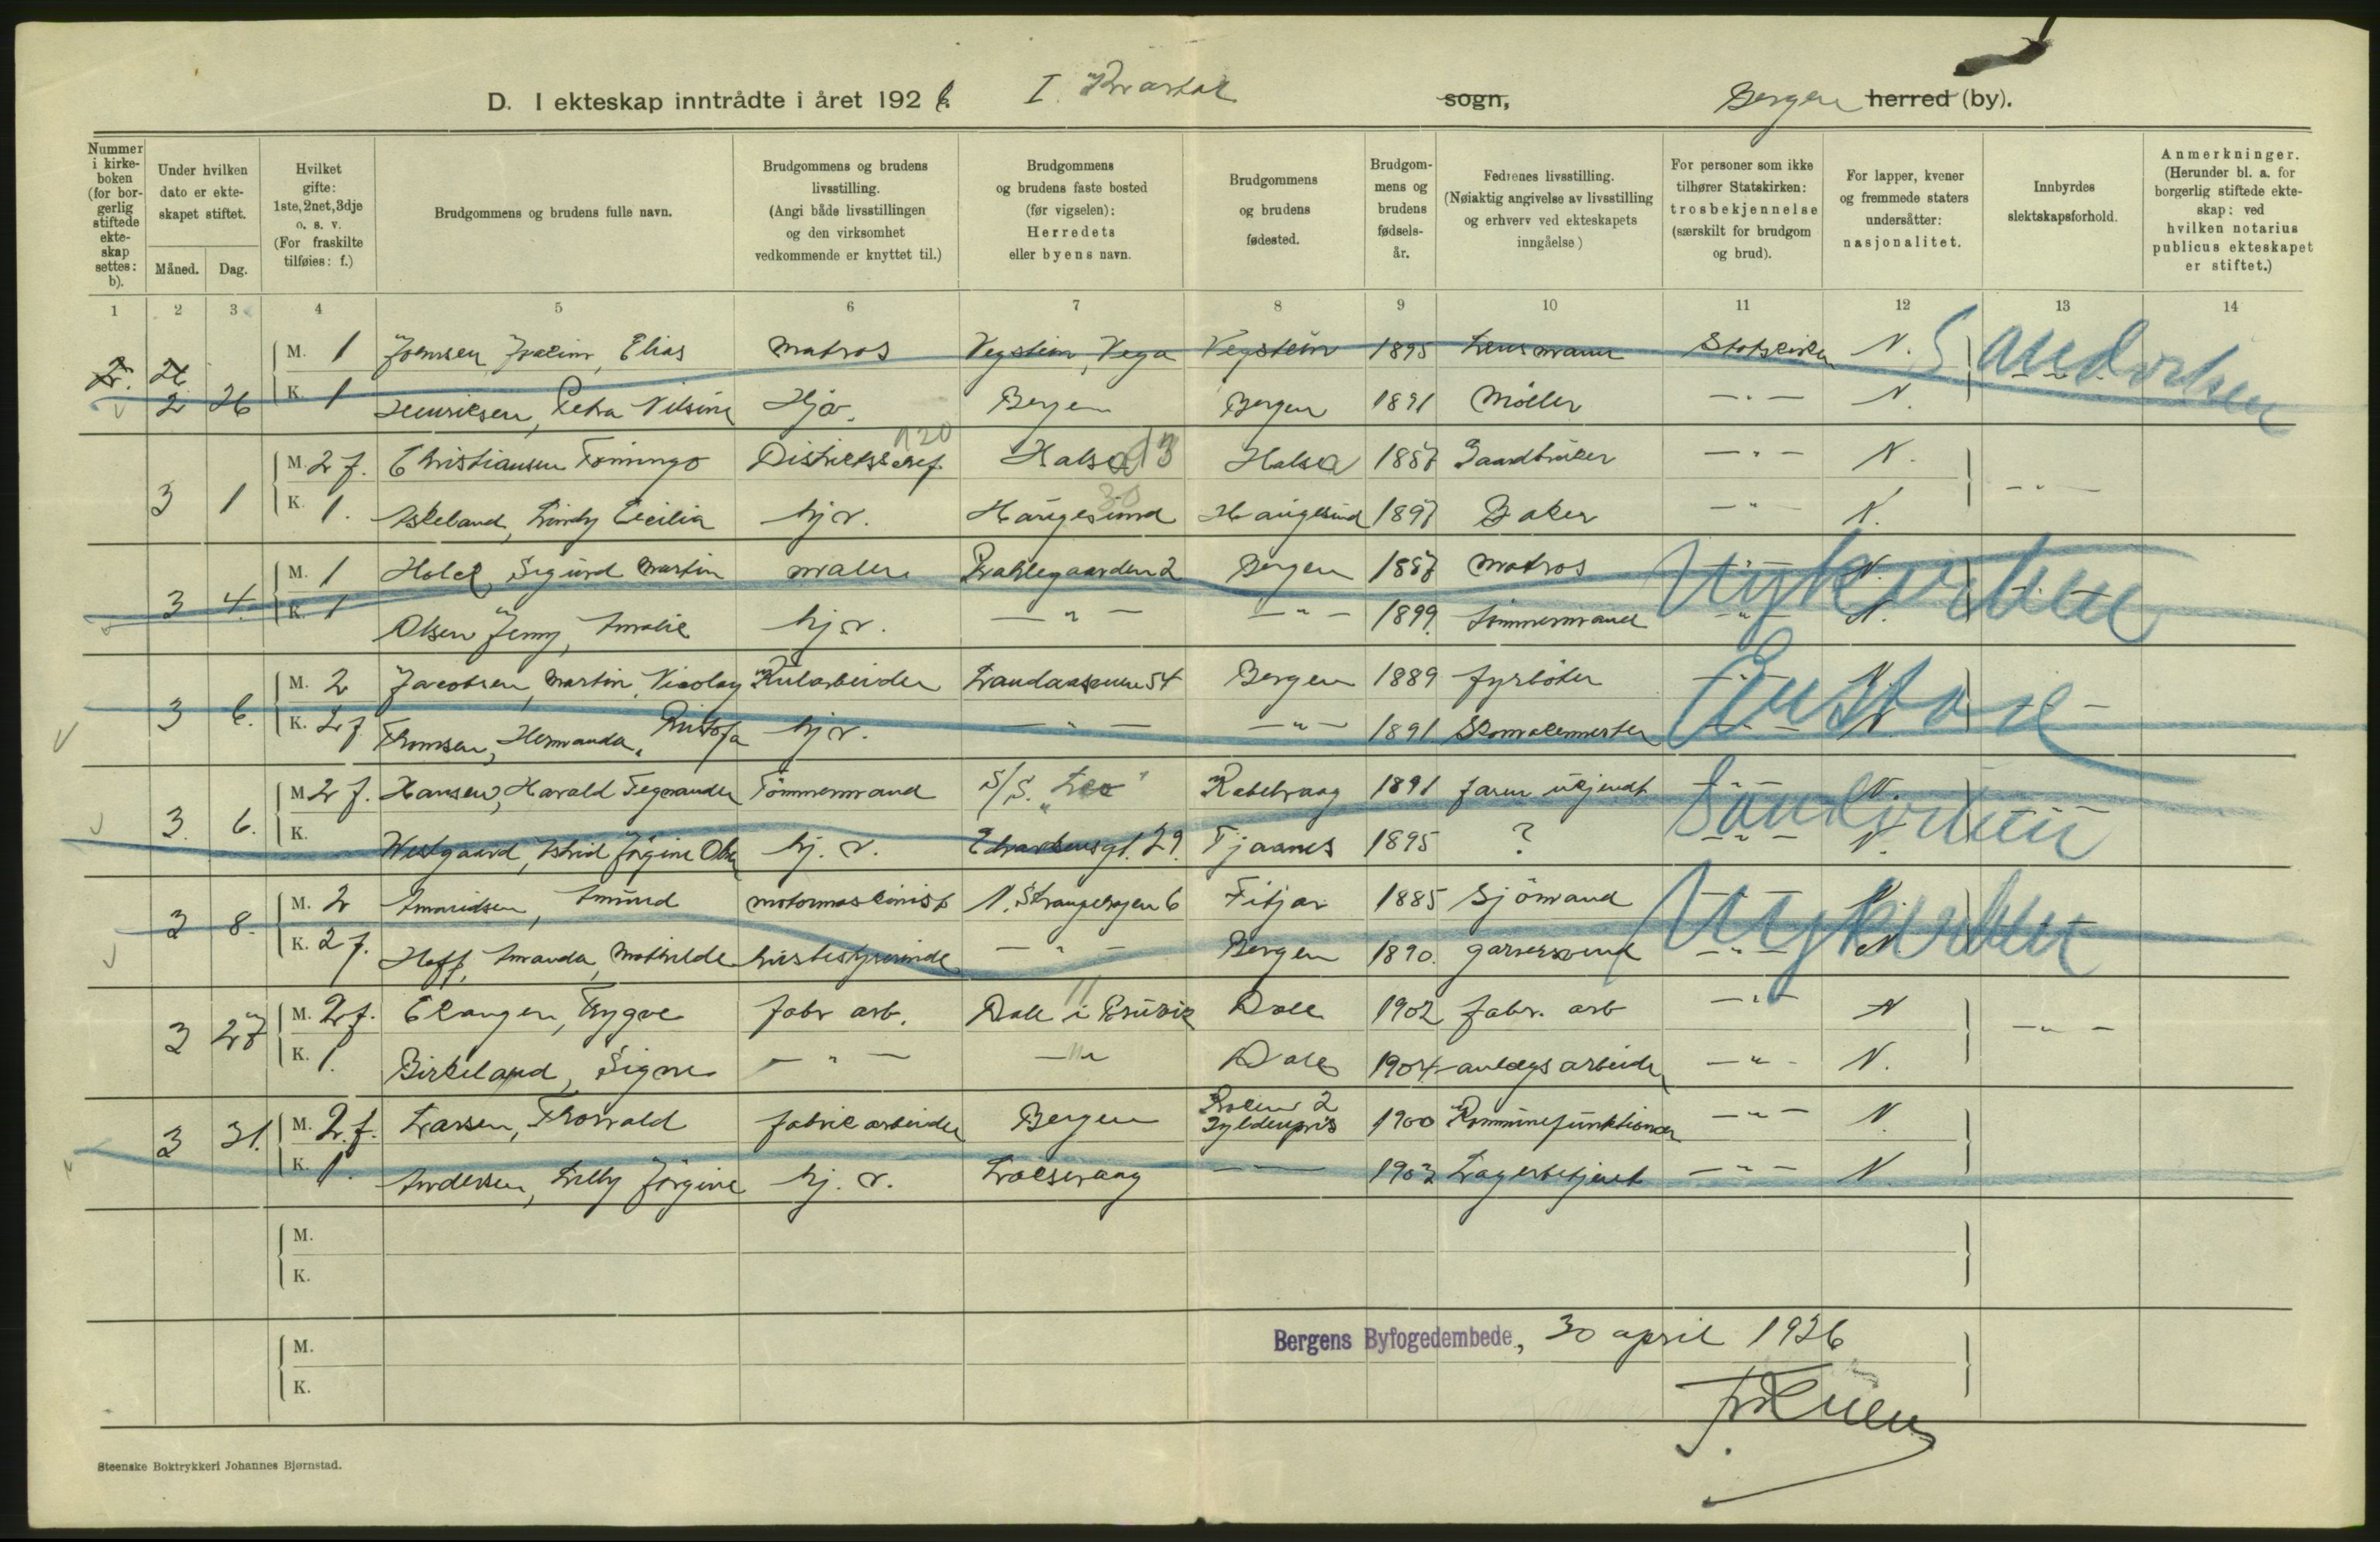 D. I ekteskap inntrådte i året 1926. I. Kvartal sogn, Bergen herred (by).
Nummer i kirkeboken (for borgerlig stiftede ekteskap settes: b).
Under hvilken dato er ekteskapet stiftet.
Måned. Dag.
Hvilket gifte: 1ste, 2net, 3dje o. s. v. (For fraskilte tilføies: f.)
Brudgommens og brudens fulle navn.
Brudgommens og brudens livsstilling. (Angi både livsstillingen og den virksomhet vedkommende er knyttet til.)
Brudgommens og brudens faste bosted (før vigselen): Herredets eller byens navn.
Brudgommens og brudens fødested.
Brudgommens og brudens fødselsår.
Fedrenes livsstilling. (Nøiaktig angivelse av livsstilling og erhverv ved ekteskapets inngåelse)
For personer som ikke tilhører Statskirken: trosbekjennelse (særskilt for brudgom og brud).
For lapper, kvener og fremmede staters undersåtter: nasjonalitet.
Innbyrdes slektskapsforhold.
Anmerkninger. (Herunder bl. a. for borgerlig stiftede ekteskap: ved hvilken notarius publicus ekteskapet er stiftet.)
1 2 3 4 5 6 7 8 9 10 11 12 13 14
M. 1 Joensen, Joakim, Elias Matros Vegstein, Vega Vegstein 1895 Lensmann Statskirken N.
2 26 K. 1 Henriksen, Petra Nilsine Hjv. Bergen Bergen 1891 Möller — " — N.
Sandviken
M. 2 f. Christiansen Domingo Distriktschef. Halsa Halsa 1887 Gaardbruker — " — N.
120 13
3 1 K. 1. Askeland, Lindy Cecilia hjv. Haugesund Haugesund 1897 Baker — " N. — " —
30
M. 1 Holck, Sigurd Martin maler Prahlegaarden 2 Bergen 1887 Matros — " — N.
3 4. K. 1 Olsen Jenny, Amalie hjv. — " — — " — 1899. tömmermand — " — N.
Nykirken
M. 2 Jacobsen, Martin, Nicolay Kularbeider Landaasveien 54 Bergen 1889 fyrböter — " — N.
3 6. K. 2 f Thomsen, Hermanda, Kristofa hjv. — " — — " — 1891 Skomakermester — " — N.
M. 2 f. Hansen, Harald Tegnander Tömmermand S/S. "Leo" Kabelvaag 1891 farm ukjendt — " — N.
3. 6. K. Westgaard, Astrid Jörgine Olsen hj. v. Edvardsensgt. 29. Tjaanes 1895 ? — " — N.
M. 2 Amundsen, Amund motormaskinist N. Strangehagen 6 Fitjar 1885 Sjömand — " — N.
3 8. K. 2 f. Hoff, Amanda, Mathilde husbestyrerinde — " — Bergen 1890. garversvend — " — N
Nykirken
M. 2 f. Elangen, Trygve fabr arb. Dale i Bruvik Dale 1902 fabr. arb — " — N
11
3 27 K. 1. Birkeland, Signe — " — — " — Dale 1904 anlægsarbeider — " — N. — " —
M. 2. f. Larsen, Thorvald fabrikarbeider Bergen Gyldenpris 1900 Kommunefunktionær — " — N.
3 31. K. 1. Andersen, Lilly Jörgine hj. v. Laksevaag — — 1903 Lagerbetjent — " — N.
M.
K.
M.
K.
Bergens Byfogedembede, 30 april 1926
Steenske Boktrykkeri Johannes Bjørnstad.